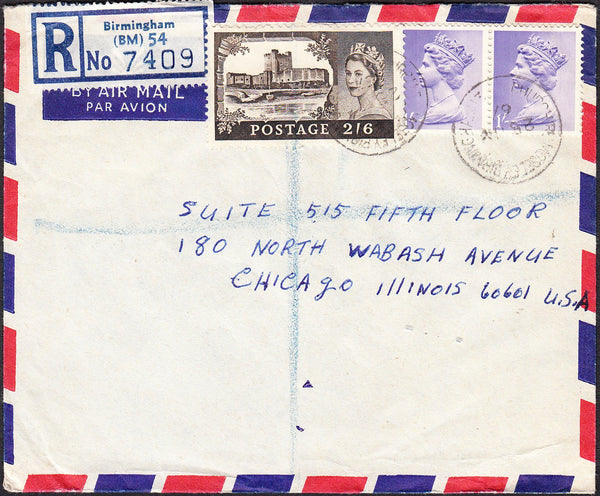 R
Birmingham
(BM) 54
No 7409
BY AIR MAIL
PAR AVION
POSTAGE 2/6
SUITE 515 FIFTH FLOOR
180 NORTH WABASH AVENUE
CHICAGO IllINOIS 60601 U.S.A